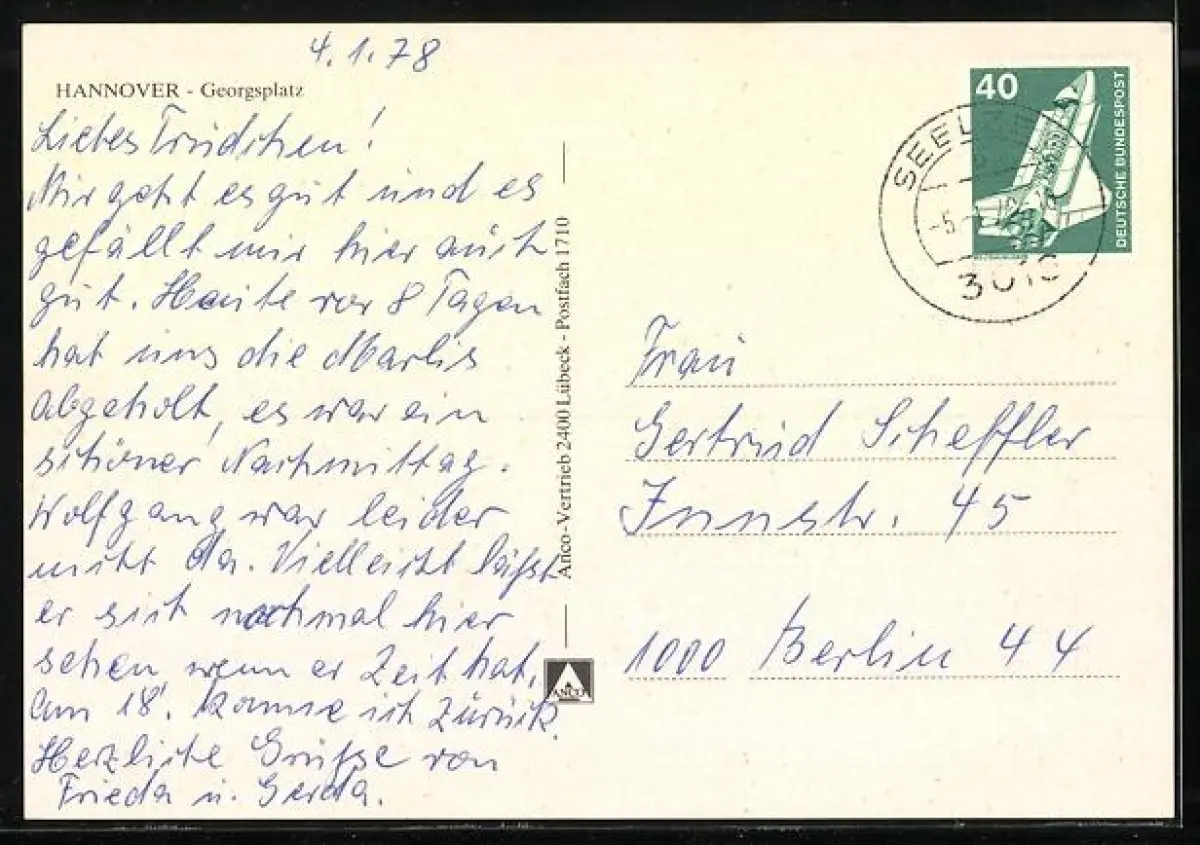 4.1.78
HANNOVER - Georgsplatz
Liebes Trudchen!
Mir geht es gut und es
gefällt mir hier auch
gut. Heute vor 8 Tagen
hat uns die Marlis
abgeholt, es war ein
schöner Nachmittag.
Wolfgang war leider
nicht da. Vielleicht läßt
er sich nochmal hier
sehen wenn er Zeit hat.
Am 18. komme ich zurück.
Herzliche Grüße von
Frieda u. Gerda.
Anco-Vertrieb 2400 Lübeck - Postfach 1710
ANCO
40
DEUTSCHE BUNDESPOST
-5.-1.
Frau
Gertrud Scheffler
Innstr. 45
1000 Berlin 44